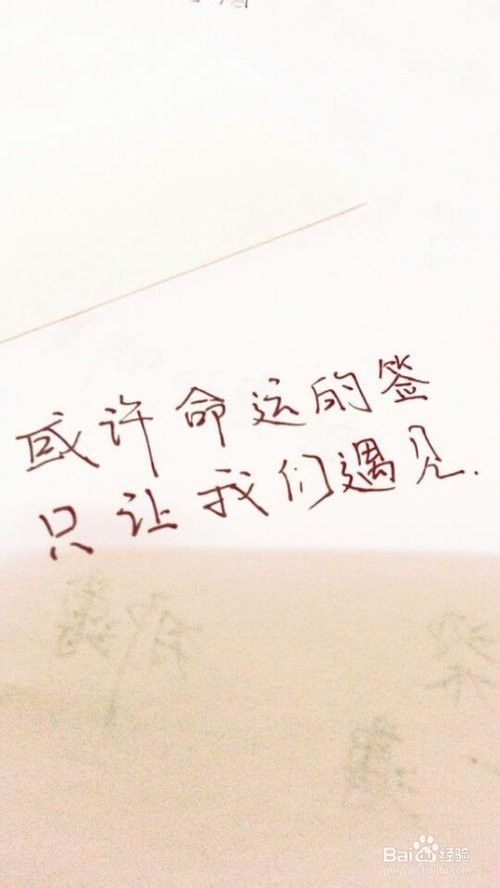 或许命运的签
只让我们遇见.
Baidu经验
jingyan.baidu.com